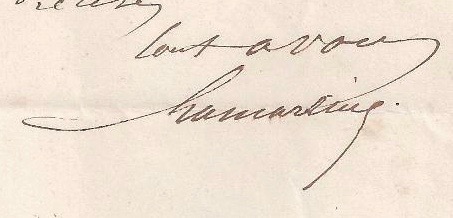 tout a vous
Lamartine.